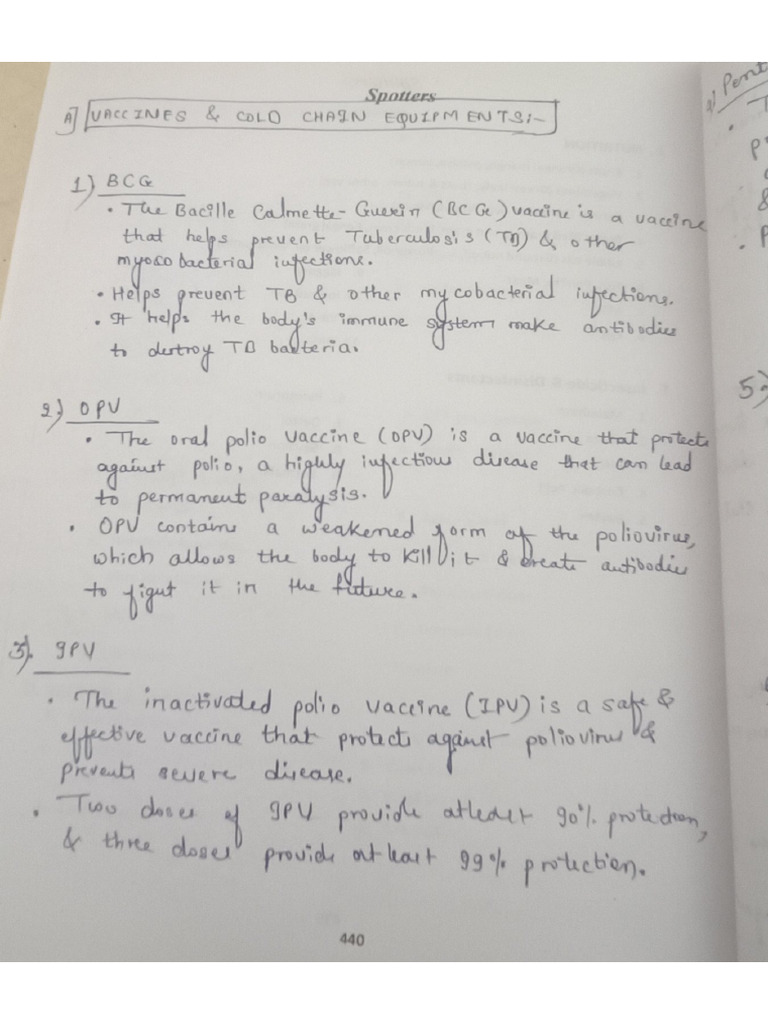 Spotters
A] VACCINES & COLD CHAIN EQUIPMENTS:-
a) Pent
1) BCG
• The Bacille Calmette-Guerin (BCG) vaccine is a vaccine
that helps prevent Tuberculosis (TB) & other
myocobacterial infections.
• Helps prevent TB & other mycobacterial infections.
• It helps the body's immune system make antibodies
to destroy TB bacteria.
2) OPV
• The oral polio vaccine (OPV) is a vaccine that protects
against polio, a highly infectious disease that can lead
to permanent paralysis.
• OPV contains a weakened form of the poliovirus,
which allows the body to kill it & create antibodies
to fight it in the future.
5)
3). IPV
• The inactivated polio vaccine (IPV) is a safe &
effective vaccine that protects against poliovirus &
prevents severe disease.
• Two doses of IPV provide atleast 90% protection,
& three doses provide at least 99% protection.
440